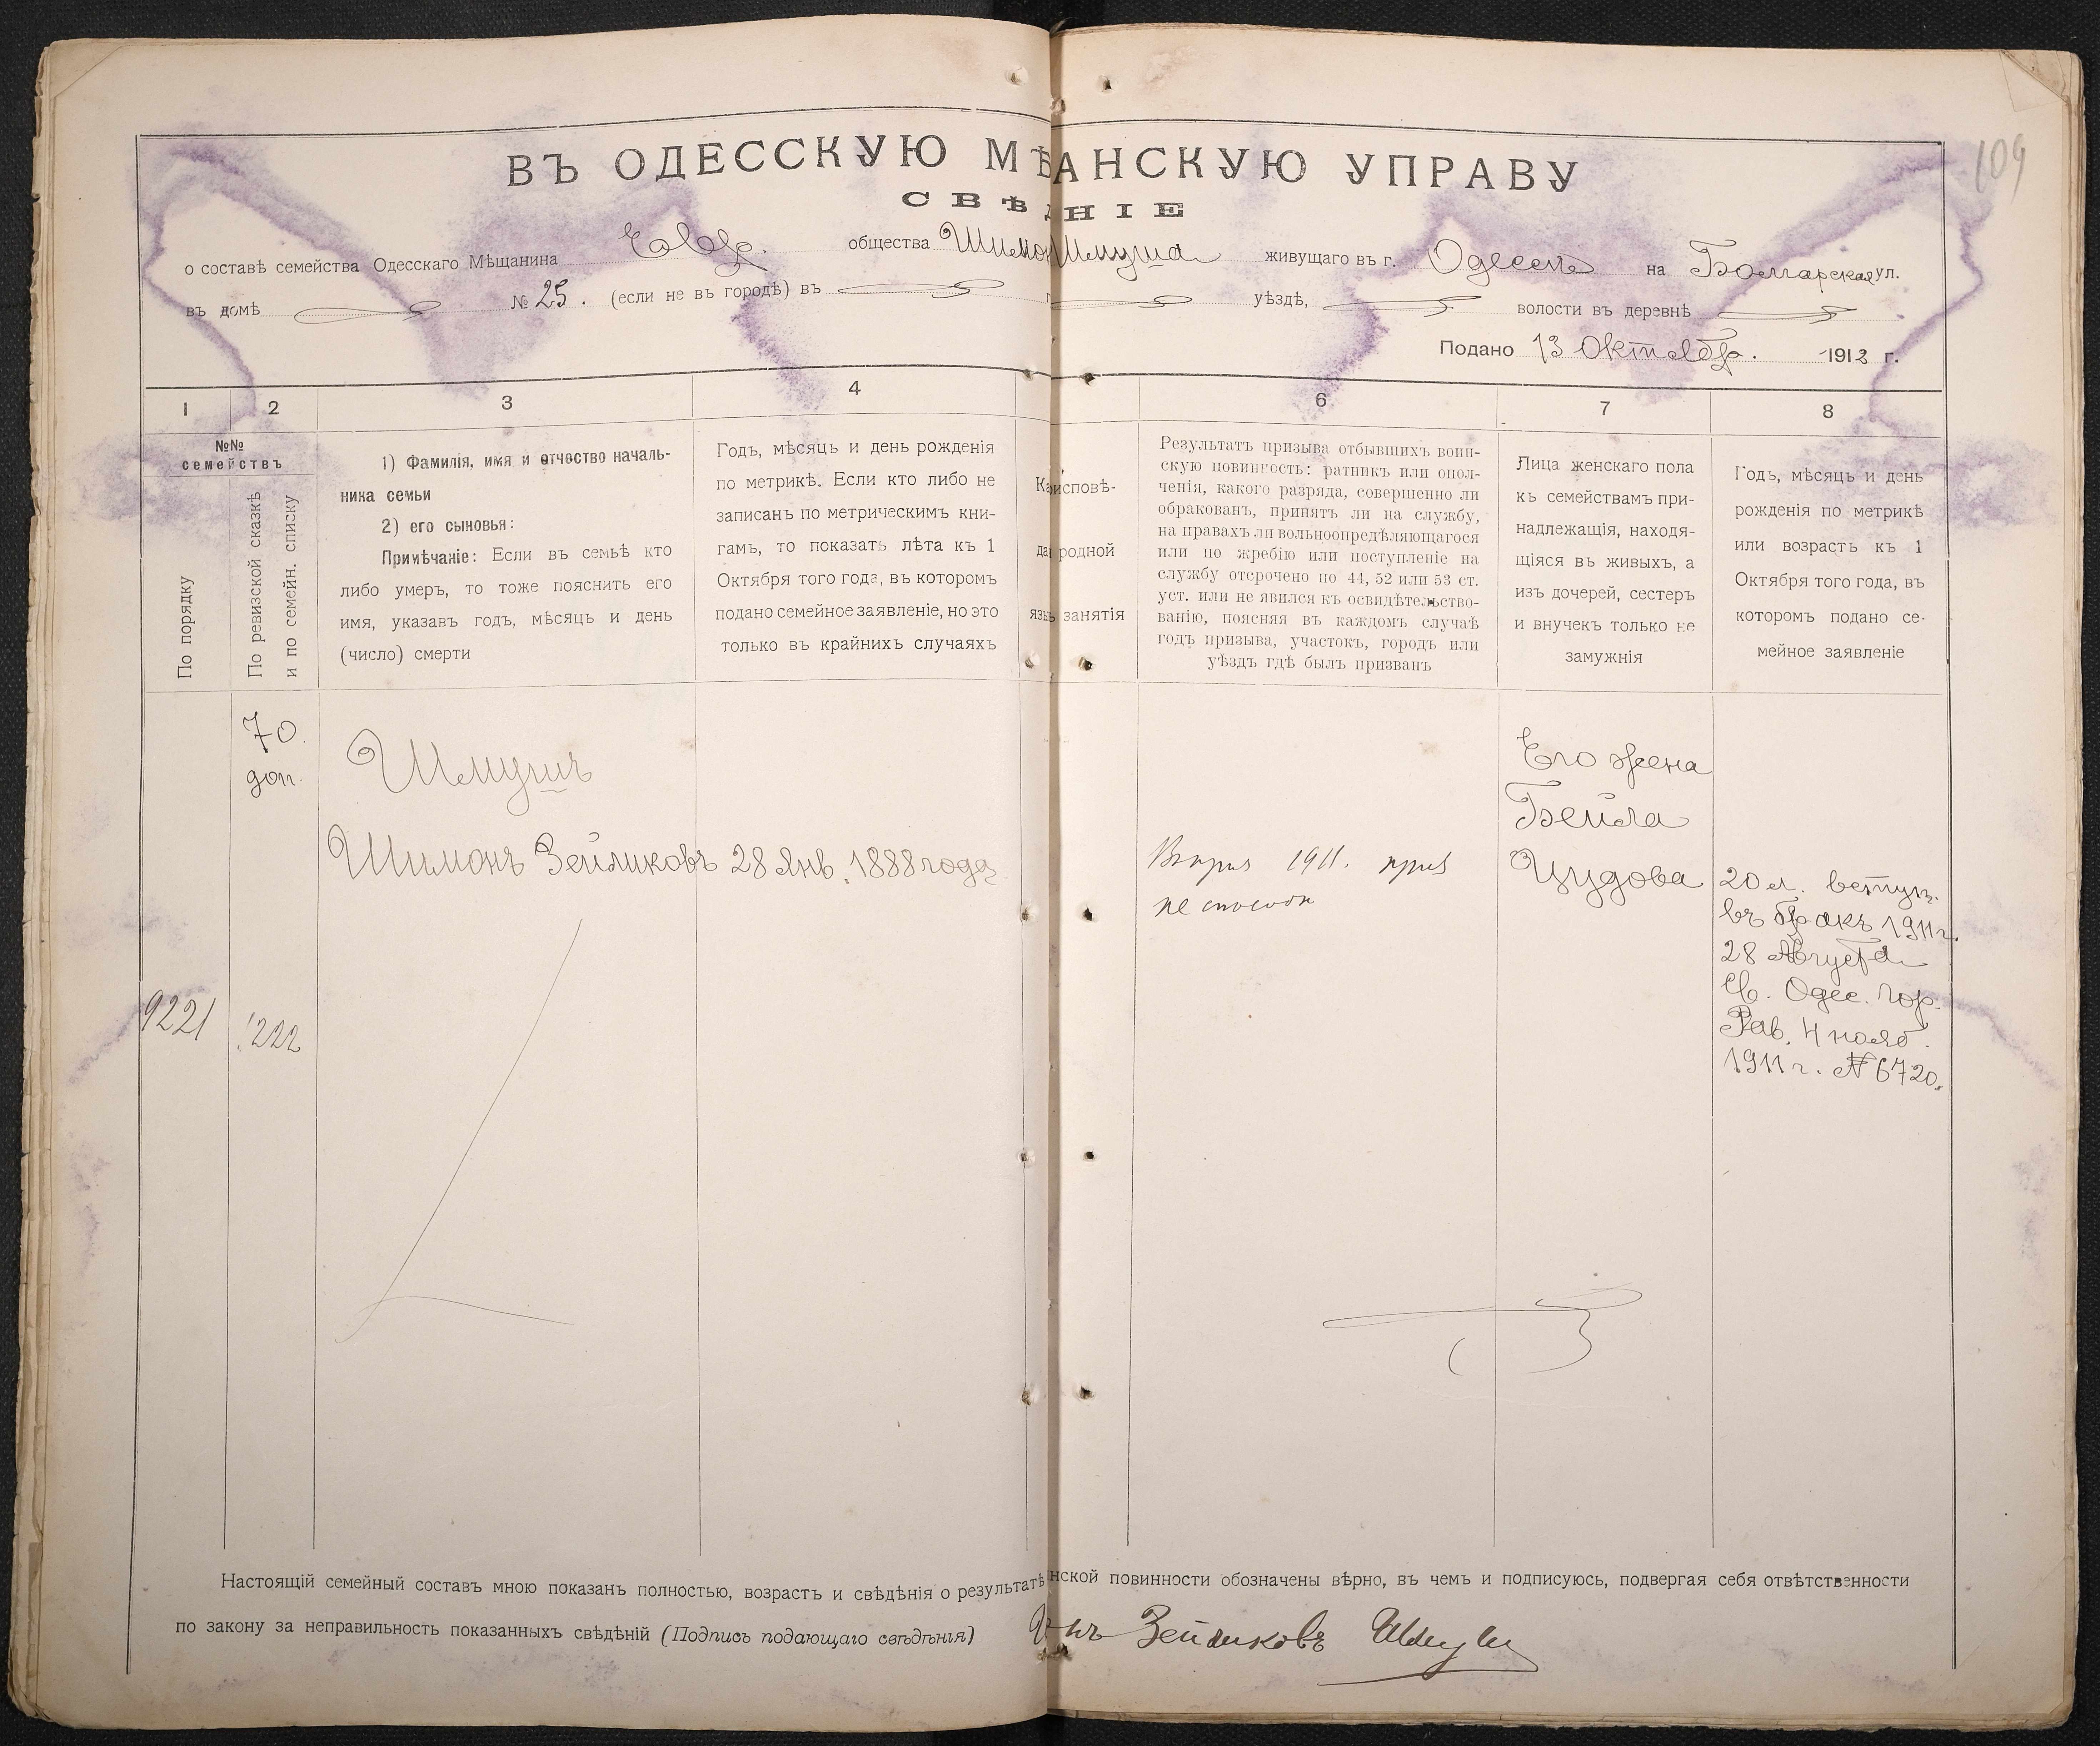 109
ВЪ ОДЕССКУЮ МѢ АНСКУЮ УПРАВУ
СВѢД НІЕ
о составѣ семейства Одесскаго Мѣщанина Евр. общества Шимон Шмуша живущаго въ г. Одессѣ на Болгарская ул.
въ домѣ № 25. (если не въ городѣ) въ уѣздѣ, волости въ деревнѣ
Подано 13 Октябр. 1912 г.
1 2 3 4 6 7 8
№№ семействъ
По порядку
По ревизской сказкѣ и по семейн. списку
1) Фамилія, имя и отчество началь-
ника семьи
2) его сыновья:
Примѣчаніе: Если въ семьѣ кто
либо умеръ, то тоже пояснить его
имя, указавъ годъ, мѣсяцъ и день
(число) смерти
Годъ, мѣсяцъ и день рожденія
по метрикѣ. Если кто либо не
записанъ по метрическимъ кни-
гамъ, то показать лѣта къ 1
Октября того года, въ которомъ
подано семейное заявленіе, но это
только въ крайнихъ случаяхъ
Ка исповѣ-
да родной
язы занятія
Результатъ призыва отбывшихъ воин-
скую повинность: ратникъ или опол-
ченія, какого разряда, совершенно ли
обракованъ, принятъ ли на службу,
на правахъ ли вольноопредѣляющагося
или по жребію или поступленіе на
службу отсрочено по 44, 52 или 53 ст.
уст. или не явился къ освидѣтельство-
ванію, поясняя въ каждомъ случаѣ
годъ призыва, участокъ, городъ или
уѣздъ гдѣ былъ призванъ
Лица женскаго пола
къ семействамъ при-
надлежащія, находя-
щіяся въ живыхъ, а
изъ дочерей, сестеръ
и внучекъ только не
замужнія
Годъ, мѣсяцъ и день
рожденія по метрикѣ
или возрастъ къ 1
Октября того года, въ
которомъ подано се-
мейное заявленіе
70
доп.
Шмушъ
Шимонъ Зейликовъ 28 Янв. 1888 года
9221
1222
1911. приз
не способн
Его жена
Бейла
Цудова
20 л. вступ.
въ бракъ 1911 г.
28 Августа
Св. Одес. Гор.
Рав. 4 нояб.
1911 г. № 6720.
Настоящій семейный составъ мною показанъ полностью, возрастъ и свѣдѣнія о результатѣ нской повинности обозначены вѣрно, въ чемъ и подписуюсь, подвергая себя отвѣтственности
по закону за неправильность показанныхъ свѣдѣній (Подпись подающаго свѣдѣнія) Ш нъ Зейликовъ Шмуш